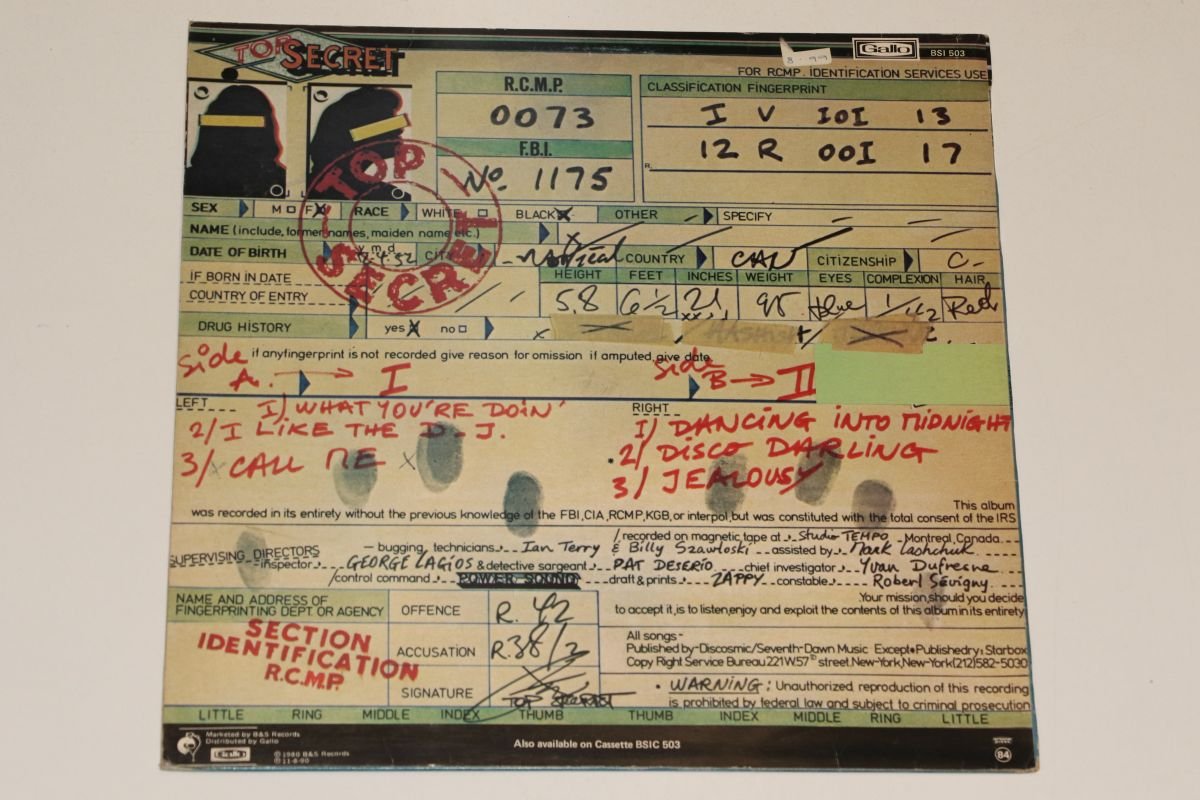 TOP SECRET
8.99
Gallo BSI 503
FOR RCMP. IDENTIFICATION SERVICES USE
R.C.M.P.
0073
F.B.I.
No. 1175
CLASSIFICATION FINGERPRINT
I V IOI 13
R. 12 R OOI 17
TOP SECRET
SEX M F RACE WHITE BLACK OTHER SPECIFY
NAME (include, former names, maiden name etc.)
DATE OF BIRTH y m d CITY COUNTRY CAN CITIZENSHIP C-
IF BORN IN DATE
COUNTRY OF ENTRY
HEIGHT FEET INCHES WEIGHT EYES COMPLEXION HAIR
5.8 6½ 21 95 blue Red
DRUG HISTORY yes no
if anyfingerprint is not recorded give reason for omission if amputed, give date
Side A. → I
Side B → II
LEFT
1) WHAT YOU'RE DOIN'
2/ I LIKE THE D.J.
3/ CALL ME
RIGHT
1) DANCING INTO MIDNIGHT
2) DISCO DARLING
3) JEALOUSY
This album
was recorded in its entirety without the previous knowledge of the FBI,CIA,RCMP,KGB,or interpol,but was constituted with the total consent of the IRS
SUPERVISING DIRECTORS — bugging, technicians Ian Terry & Billy Szawloski / recorded on magnetic tape at Studio TEMPO Montreal, Canada
assisted by Mark Lashchuk
inspector GEORGE LAGIOS & detective sergeant PAT DESERIO chief investigator Yvan Dufresne
/control command POWER SOUND draft & prints ZAPPY constable Robert Sévigny
Your mission,should you decide
to accept it,is to listen,enjoy and exploit the contents of this album in its entirety
NAME AND ADDRESS OF
FINGERPRINTING DEPT. OR AGENCY
SECTION
IDENTIFICATION
R.C.M.P.
OFFENCE R. 42
ACCUSATION R.38/2
SIGNATURE TOP SECRET
All songs-
Published by-Discosmic/Seventh-Dawn Music Except•Publishedry: Starbox
Copy Right Service Bureau 221 W.57th street.New-York,New-York(212)582-5030
• WARNING: Unauthorized reproduction of this recording
is prohibited by federal law and subject to criminal prosecution
LITTLE RING MIDDLE INDEX THUMB THUMB INDEX MIDDLE RING LITTLE
Marketed by B&S Records
Distributed by Gallo
Gallo
℗ 1980 B&S Records
© 11-8-90
Also available on Cassette BSIC 503
84